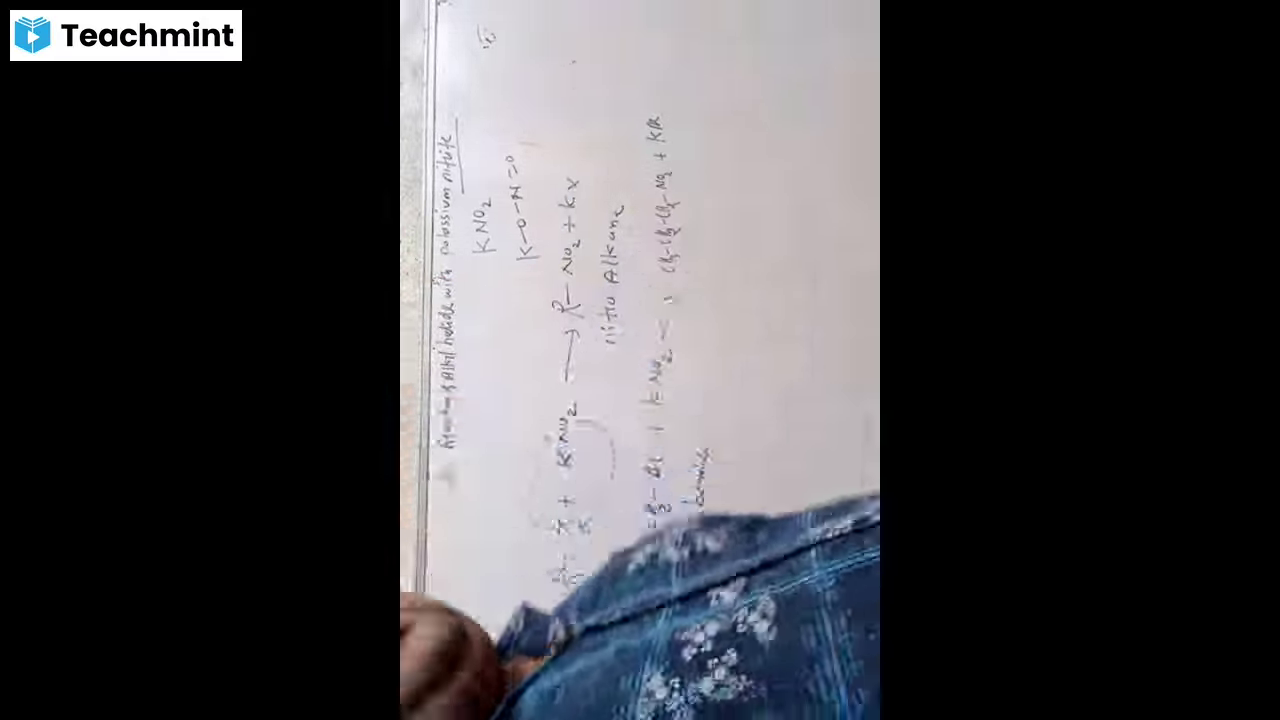 Teachmint
Reaction of Alkyl halide with potassium nitrite
KNO2
K-O-N=O
+ KNO2 → R-NO2 + KX
nitro Alkane
- Br + KNO2 → CH3-CH2-CH2-NO2 + KBr